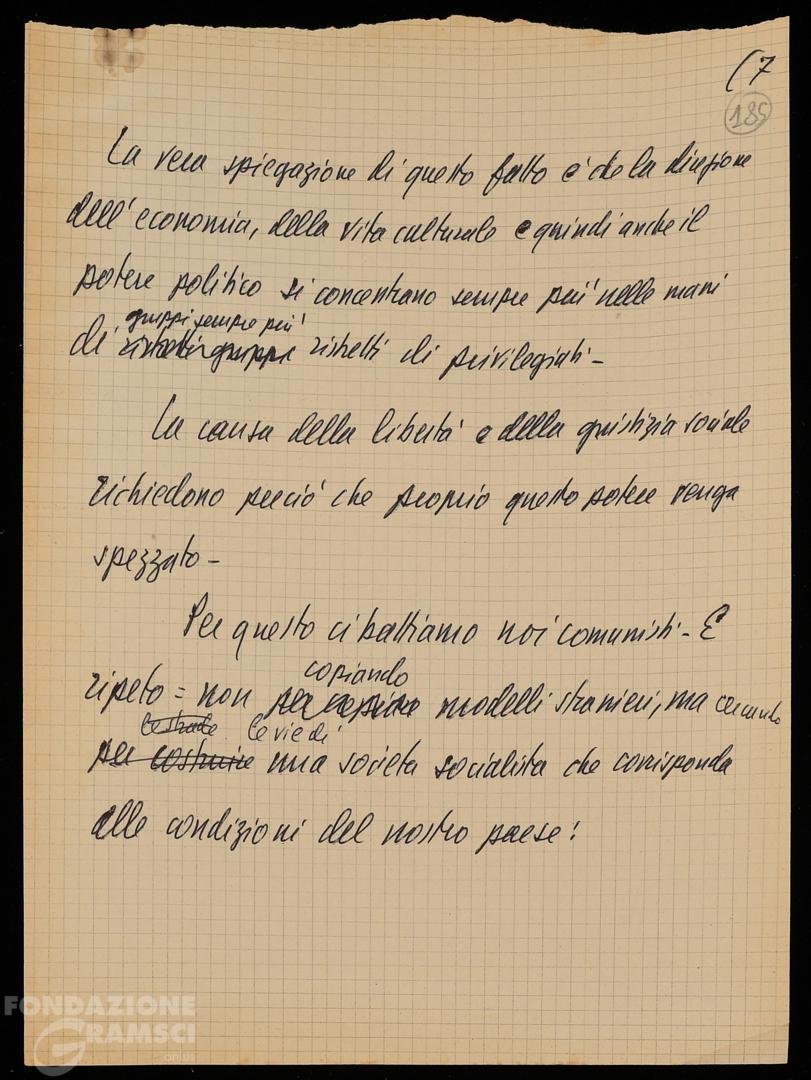 (7
185
La vera spiegazione di questo fatto è che la direzione
dell'economia, della vita culturale e quindi anche il
potere politico si concentrano sempre più nelle mani
gruppi sempre più
di ristretti gruppi ristretti di privilegiati -
La causa della libertà e della giustizia sociale
richiedono perciò che proprio questo potere venga
spezzato -
Per questo ci battiamo noi comunisti - E
copiando
ripeto = non per copiare modelli stranieri, ma cercando
le strade le vie di
per costruire una società socialista che corrisponda
alle condizioni del nostro paese!
FONDAZIONE
GRAMSCI